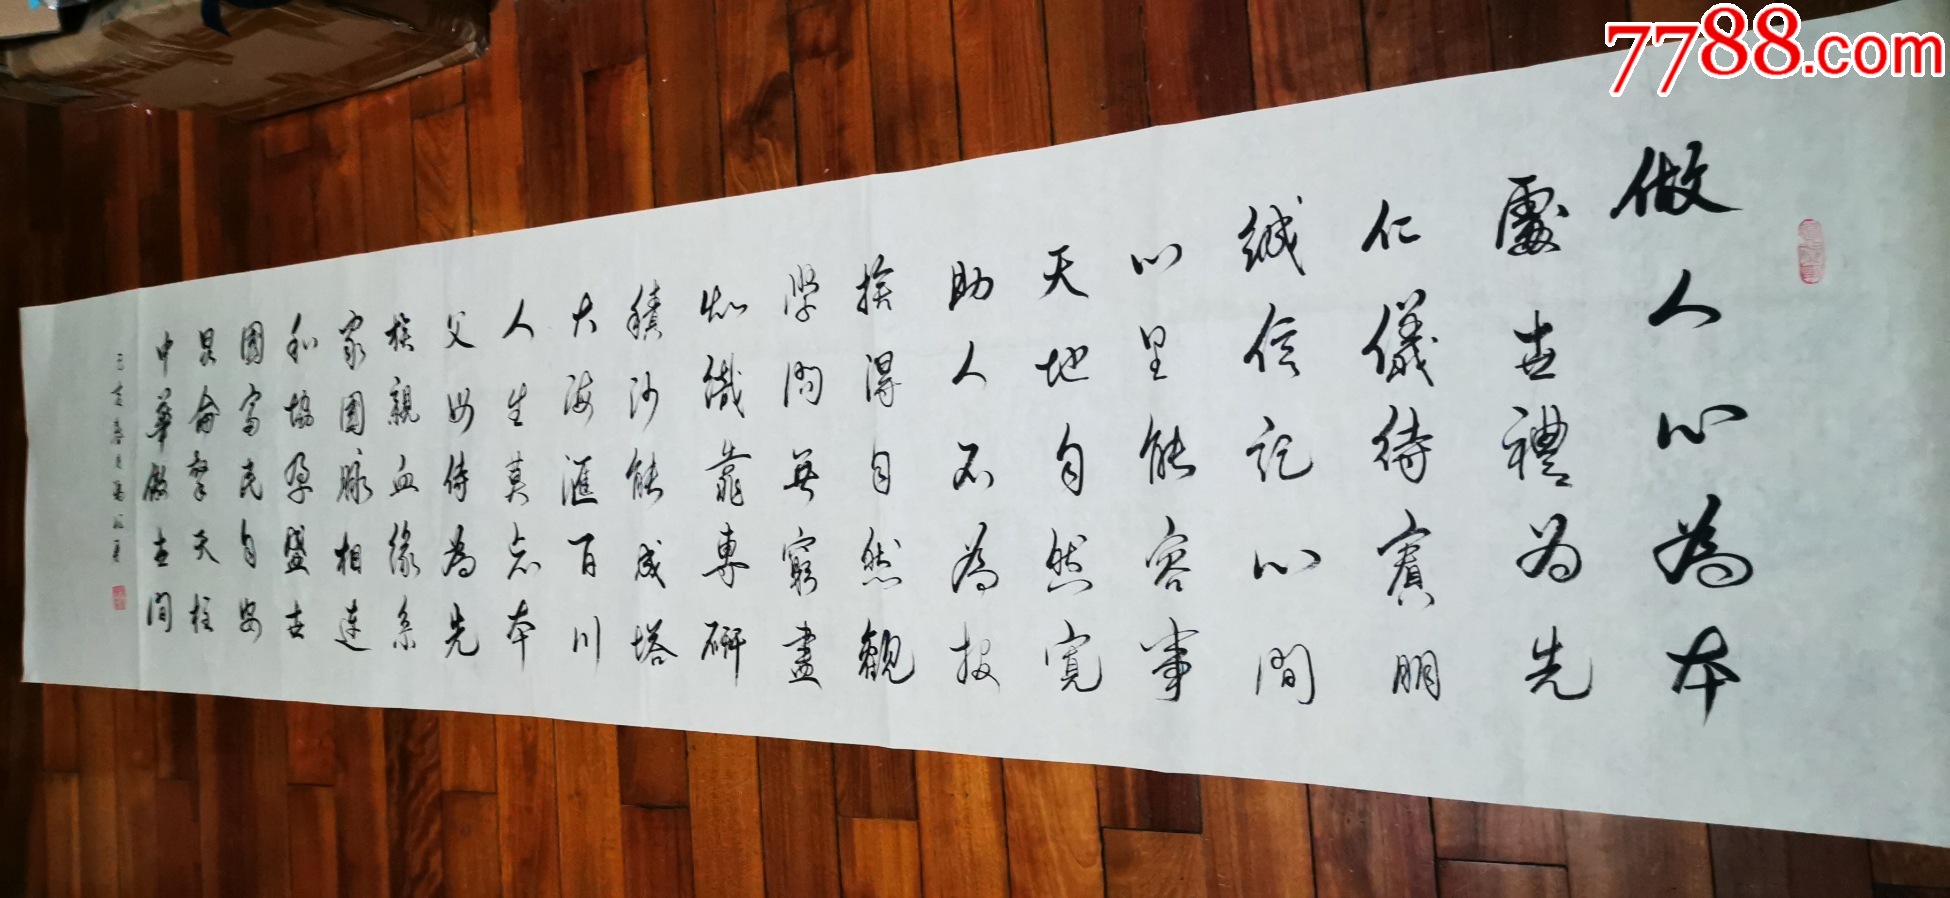 7788.com
做人心為本
處世禮為先
仁儀待賓朋
誠信記心間
心里能容事
天地自然寬
助人不為報
捨得自然觀
學問無窮盡
知識靠專研
積沙能成塔
大海滙百川
人生莫忘本
父母待為先
族親血緣系
家國脉相連
和協孕盛世
國富民自安
昆侖擎天柱
中華傲世間
己亥春月